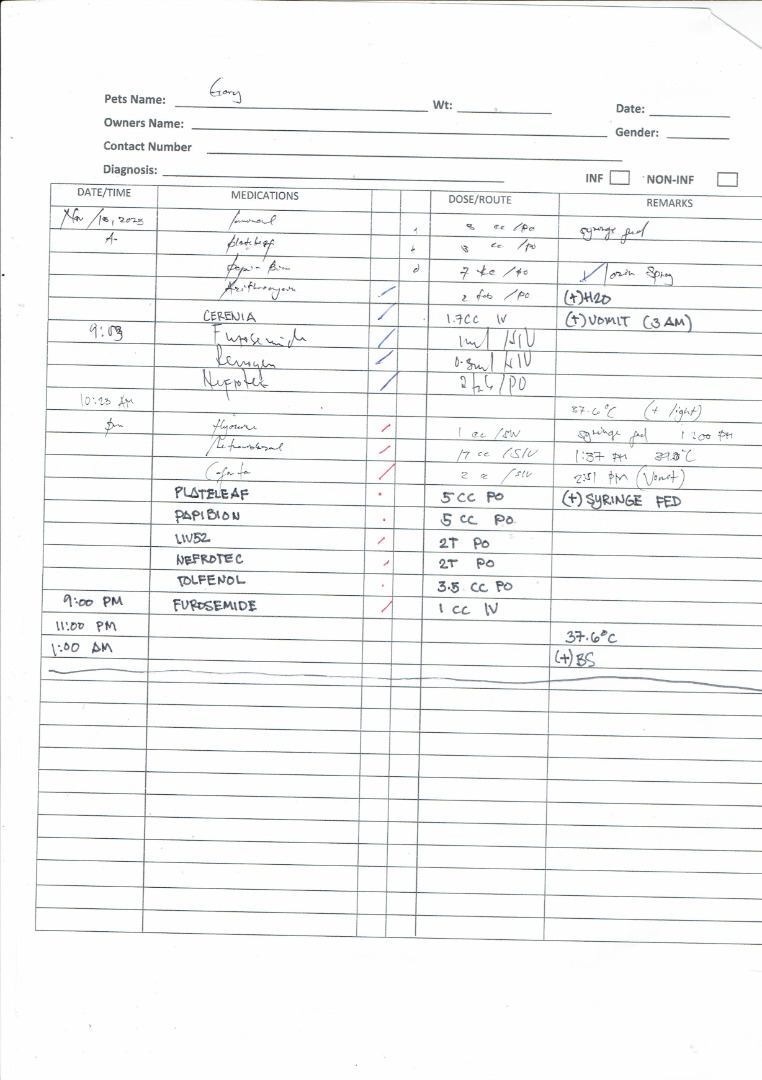 Pets Name: Gary Wt: Date:
Owners Name: Gender:
Contact Number
Diagnosis: INF NON-INF
DATE/TIME MEDICATIONS DOSE/ROUTE REMARKS
Nov /18, 2023 8 cc /PO syringe fed
8 cc /PO
7 cc /PO Spray
Azithromycin 2 tab /PO (+)H2O
CERENIA 1.7CC IV (+) VOMIT (3 AM)
9:03 Furosemide 1ml /SIV
Renogen 0.8ml /SIV
Nefrotec 2 tab /PO
10:28 AM 37.6°C (+ light)
1 cc /SIV syringe fed 1:00 PM
17 cc /SIV 1:37 PM
2 cc /SIV 2:51 PM (Vomit)
PLATELEAF 5 CC PO (+) SYRINGE FED
PAPIBION 5 CC PO
LIV52 2T PO
NEFROTEC 2T PO
TOLFENOL 3.5 CC PO
9:00 PM FUROSEMIDE 1 CC IV
11:00 PM 37.6°C
1:00 AM (+) BS